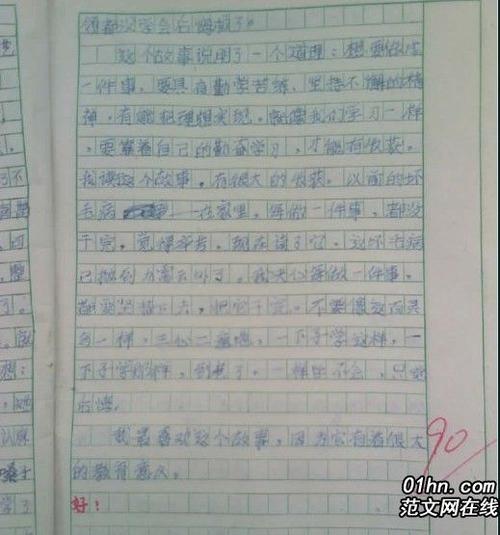 领都没学会后悔极了。
这个故事说明了一个道理：想要做成
一件事，要具有勤学苦练、坚持不懈的精
神，有敢把理想实现。就像我们学习一样
，要靠着自己的勤奋学习，才能有收获。
我读这个故事，有很大的收获。以前的坏
毛病 一在家里，每做一件事，都没
干完，觉得辛苦，现在读了它，这坏毛病
已抛到九霄云外了。我决心每做一件事，
都要坚持下去，把它干完。不要像
鸟一样，三心二意，一下子学这样，一
下子学那样，到老了，一样
后悔。
我最喜欢这个故事，因为它有着很大
的教育意义。
好：
90
01hn.com
范文网在线